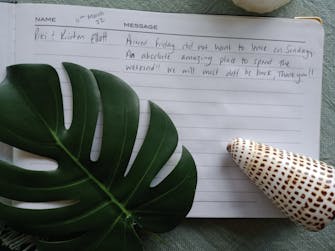 NAME MESSAGE
11th March 22
Arrived Friday did not want to leave on Sunday,
An absolute amazing place to spend the
weekend!! We will most deff be back, Thankyou!!